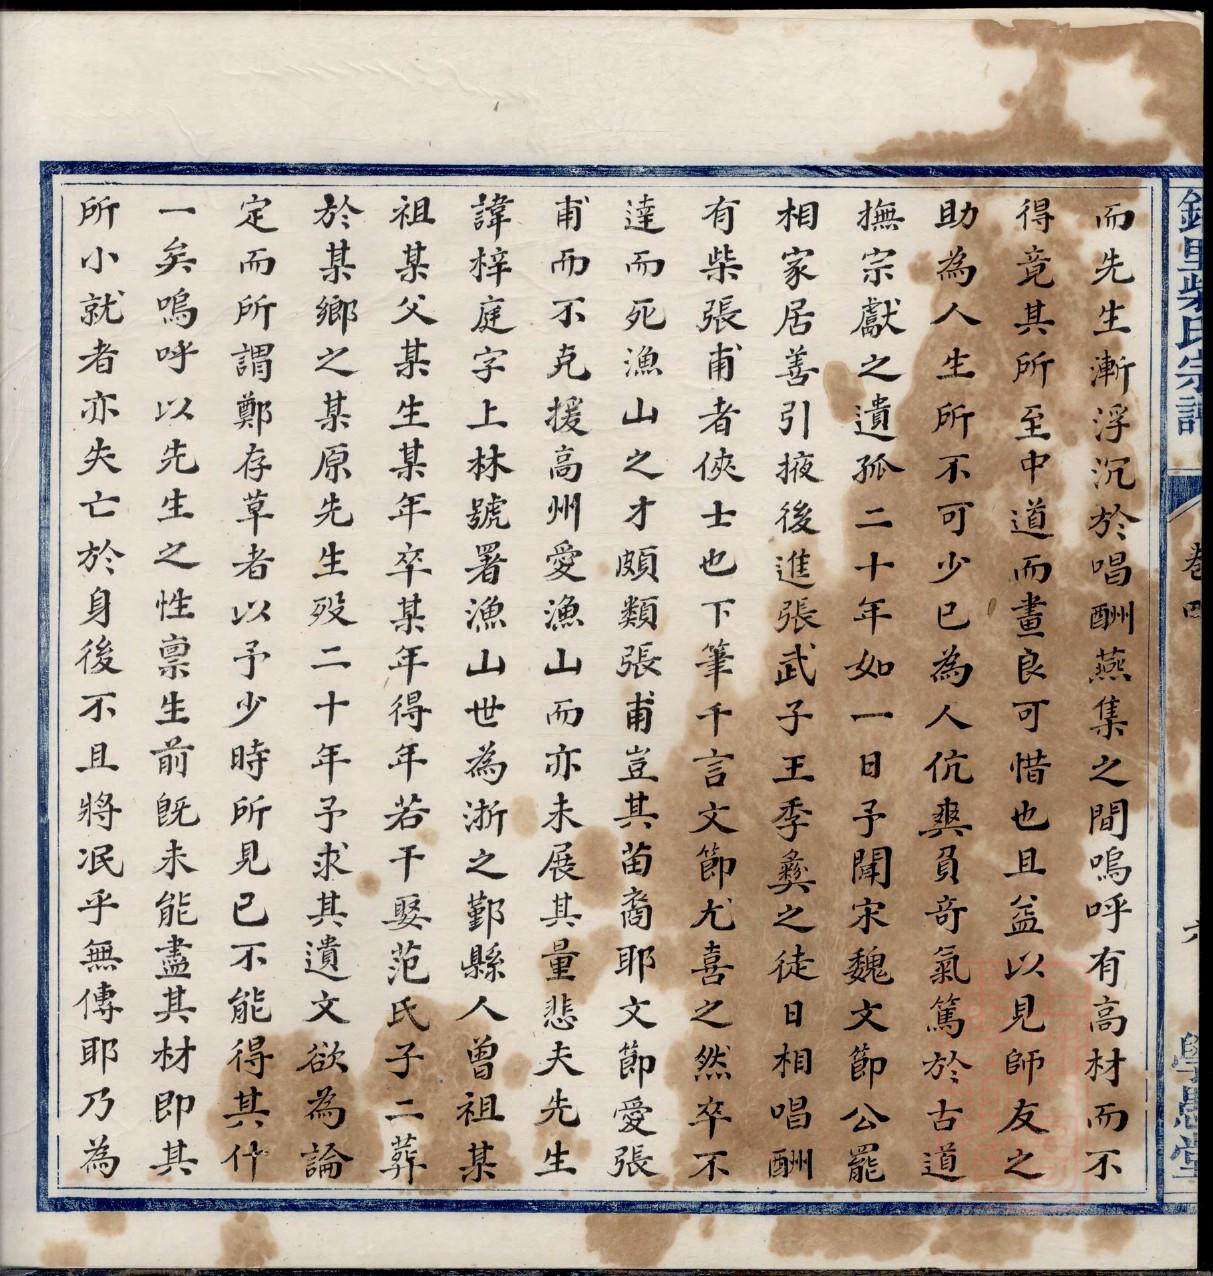 而先生漸浮沉於唱酬燕集之間嗚呼有高材而不
得竟其所至中道而畫良可惜也且益以見師友之
助為人生所不可少已為人伉爽負奇氣篤於古道
撫宗獻之遺孤二十年如一日予聞宋魏文節公罷
相家居善引掖後進張武子王季彝之徒日相唱酬
有柴張甫者俠士也下筆千言文節尤喜之然卒不
達而死漁山之才頗類張甫豈其苗裔耶文節愛張
甫而不克援高州愛漁山而亦未展其量悲夫先生
諱梓庭字上林號署漁山世為浙之鄞縣人曾祖某
祖某父某生某年卒某年得年若干娶范氏子二葬
於某鄉之某原先生歿二十年予求其遺文欲為論
定而所謂鄭存草者以予少時所見已不能得其什
一矣嗚呼以先生之性稟生前既未能盡其材即其
所小就者亦失亡於身後不且將泯乎無傳耶乃為
柴氏宗譜
卷四
六
學愚堂